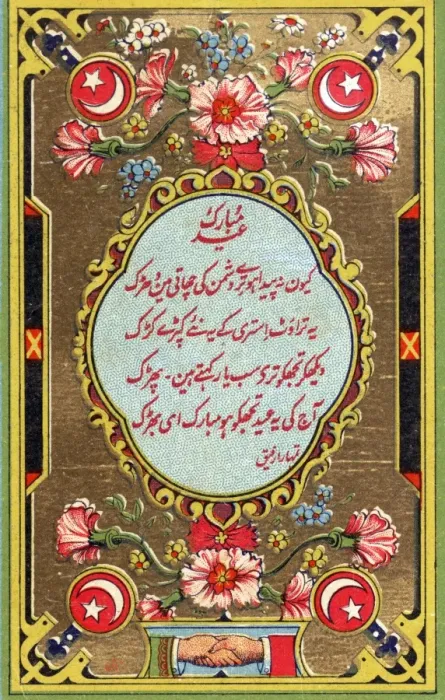 عید مبارک
کیون نہ پیدا ہو ترے دشمن کی چھاتی مین دُھڑک
یہ تراوٹ استری کے یہ نئے کپڑے کڑک
دیکھکر تجھکو تری سب یار کہتے ہین۔ پھڑک
آج کی یہ عید تجھکو ہو مبارک ای بھڑک
تمہارا رفیق